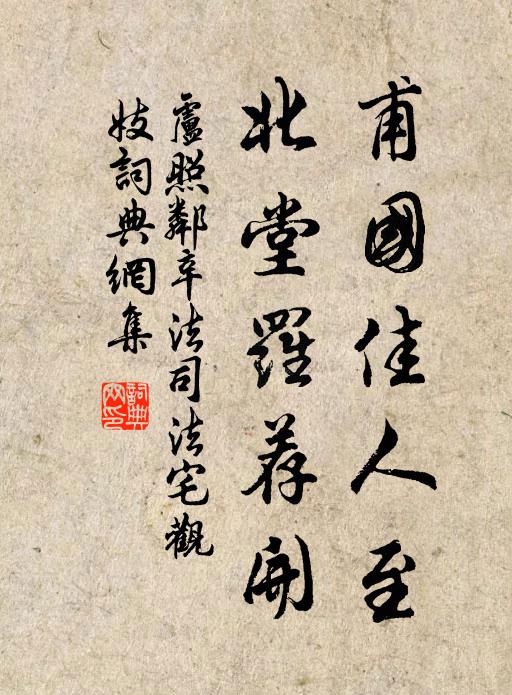 甫國佳人至
北堂羅荐開
盧照鄰辛法司法宅觀
妓詞典網集
詞典網印